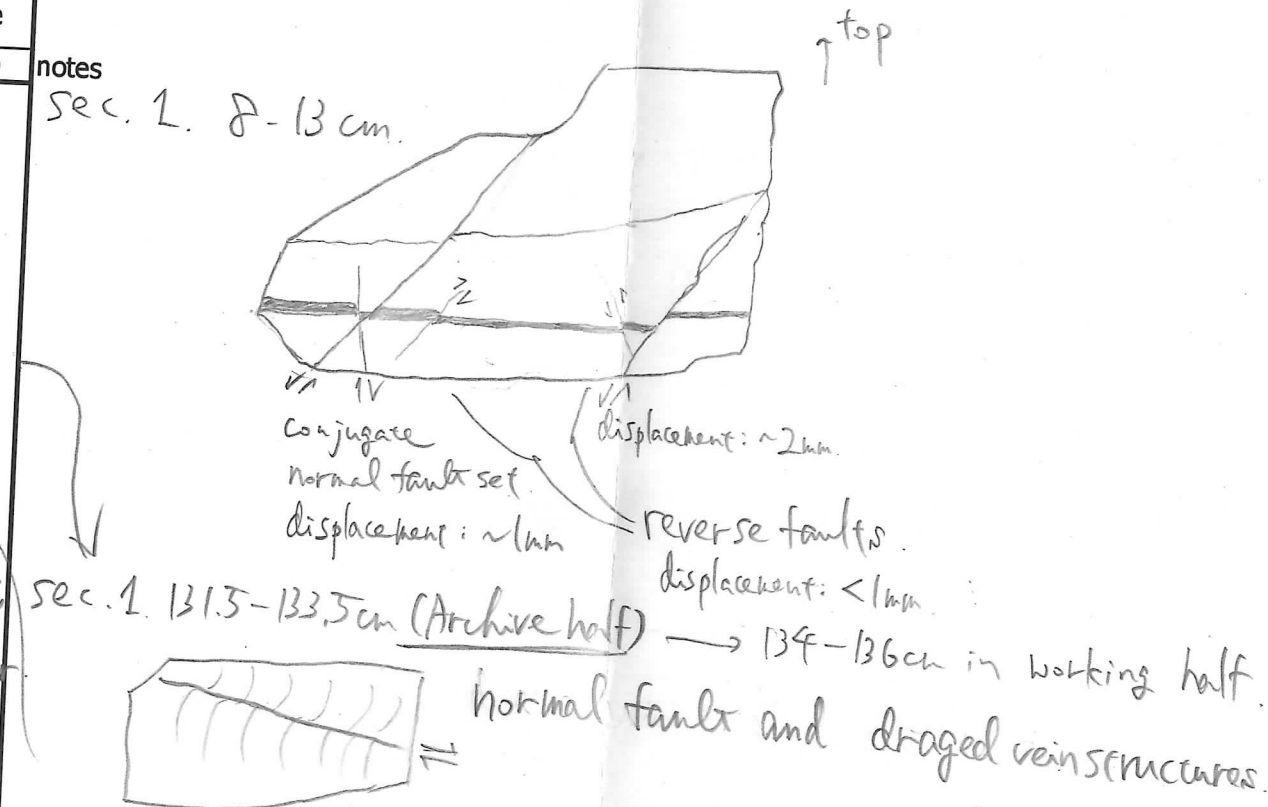 notes
↑ top
sec. 1. 8-13 cm.
conjugate
normal fault set.
displacement: ~1mm
displacement: ~2mm.
reverse faults.
displacement: <1mm
sec. 1. 131.5-133.5cm (Archive half) → 134-136cm in working half.
normal fault and draged vein structures.